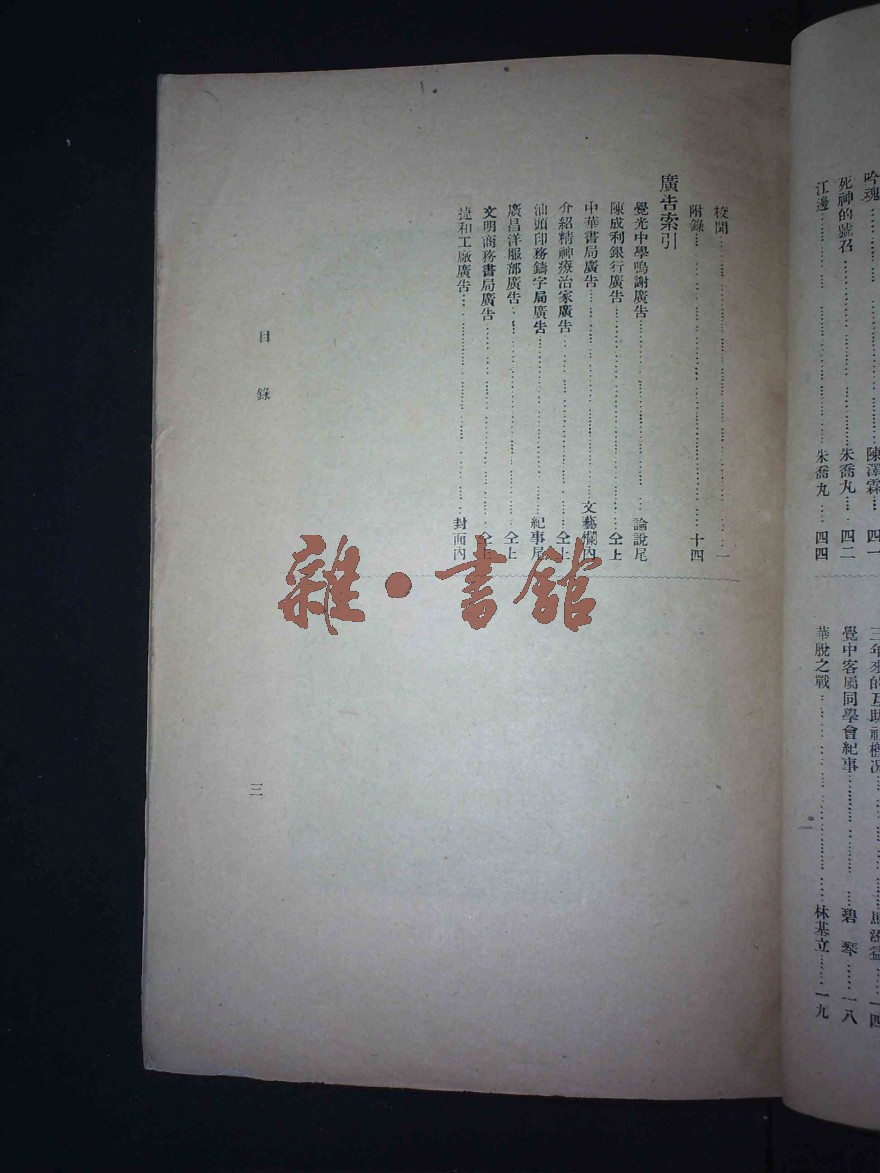 吟魂……陳澤霖…四一
死神的號召……朱喬丸…四二
江邊……朱喬丸…四四
三年來的互助社概况……一四
覺中客屬同學會紀事……碧琴……一八
華脫之戰……林基立……一九
二
校聞……一
附錄……十四
廣告索引
覺光中學鳴謝廣告……論說尾
陳成利銀行廣告……仝上
中華書局廣告……文藝欄內
介紹精神療治家廣告……仝上
汕頭印務鑄字局廣告……紀事尾
廣昌洋服部廣告……仝上
文明商務書局廣告……仝上
捷和工廠廣告……封面內
目錄
三
雜·書館